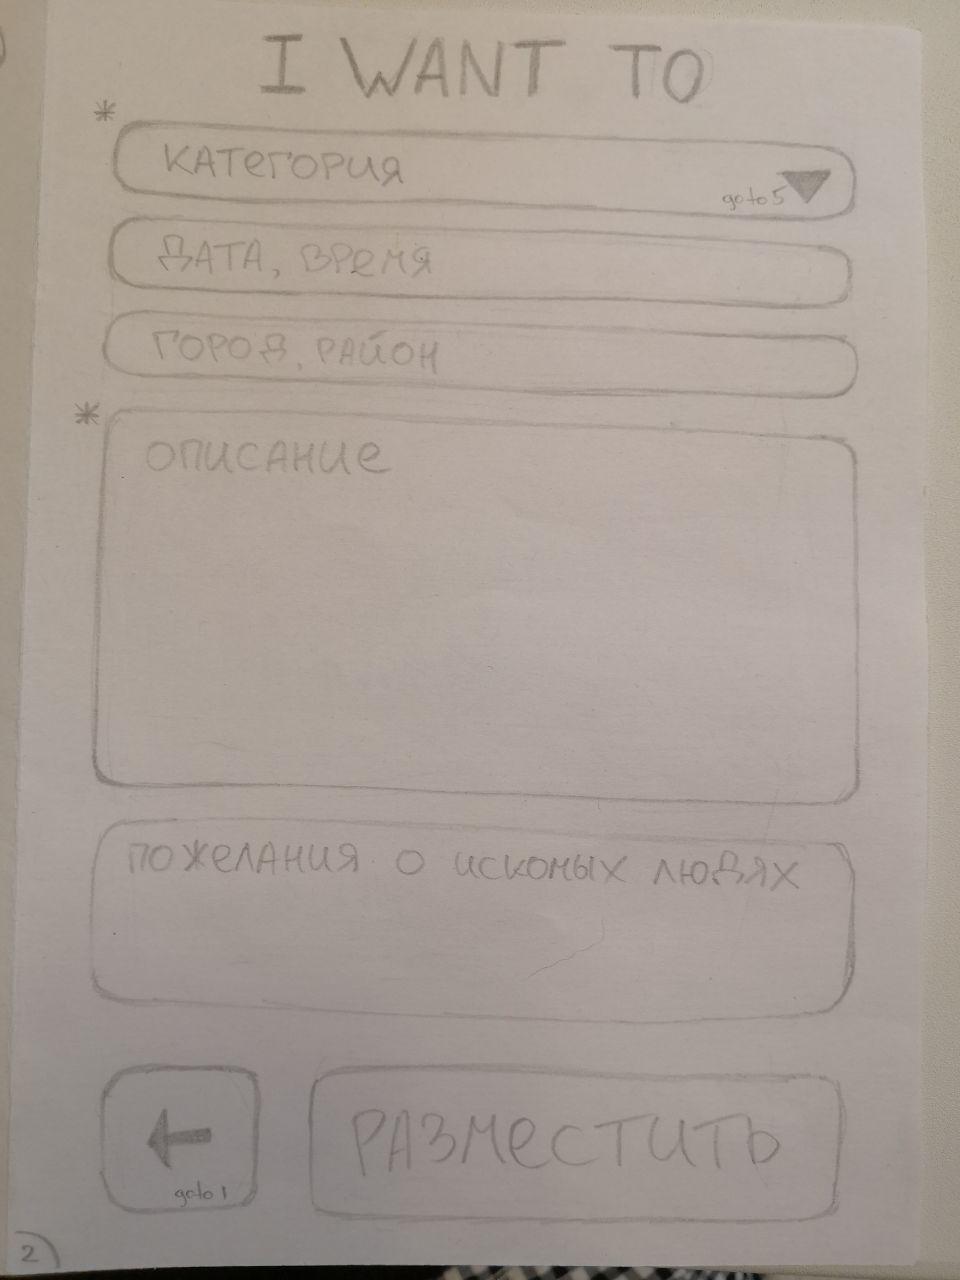 I WANT TO
*
КАТЕГОРИЯ
go to 5
ДАТА, ВРЕМЯ
ГОРОД, РАЙОН
*
ОПИСАНИЕ
ПОЖЕЛАНИЯ О ИСКОМЫХ ЛЮДЯХ
goto 1
РАЗМЕСТИТЬ
2